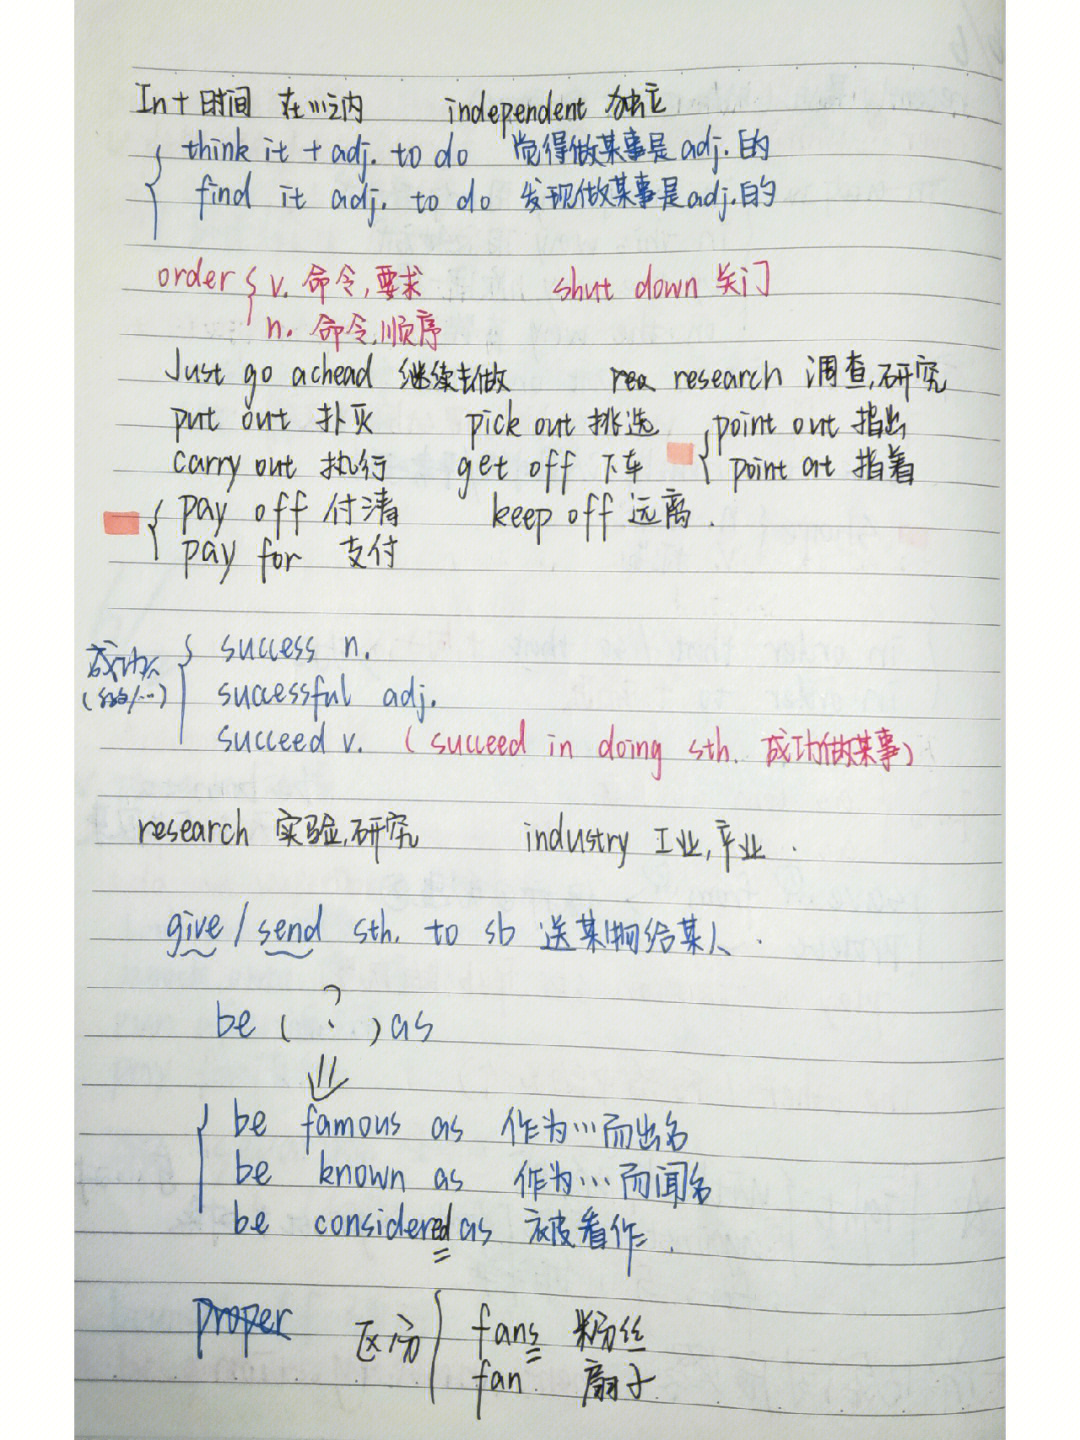 In + 时间 在…之内 independent 独立
think it + adj. to do 觉得做某事是adj.的
find it adj. to do 发现做某事是adj.的
order v. 命令,要求 shut down 关门
n. 命令,顺序
Just go achead 继续去做 rea research 调查,研究
put out 扑灭 pick out 挑选 point out 指出
carry out 执行 get off 下车 point at 指着
pay off 付清 keep off 远离.
pay for 支付
success n.
成功
successful adj.
succeed v. (succeed in doing sth. 成功做某事)
research 实验,研究 industry 工业,产业.
give/send sth. to sb 送某物给某人.
be (?) as
be famous as 作为…而出名
be known as 作为…而闻名
be considered as 被看作.
proper 区分 fans 粉丝
fan 扇子